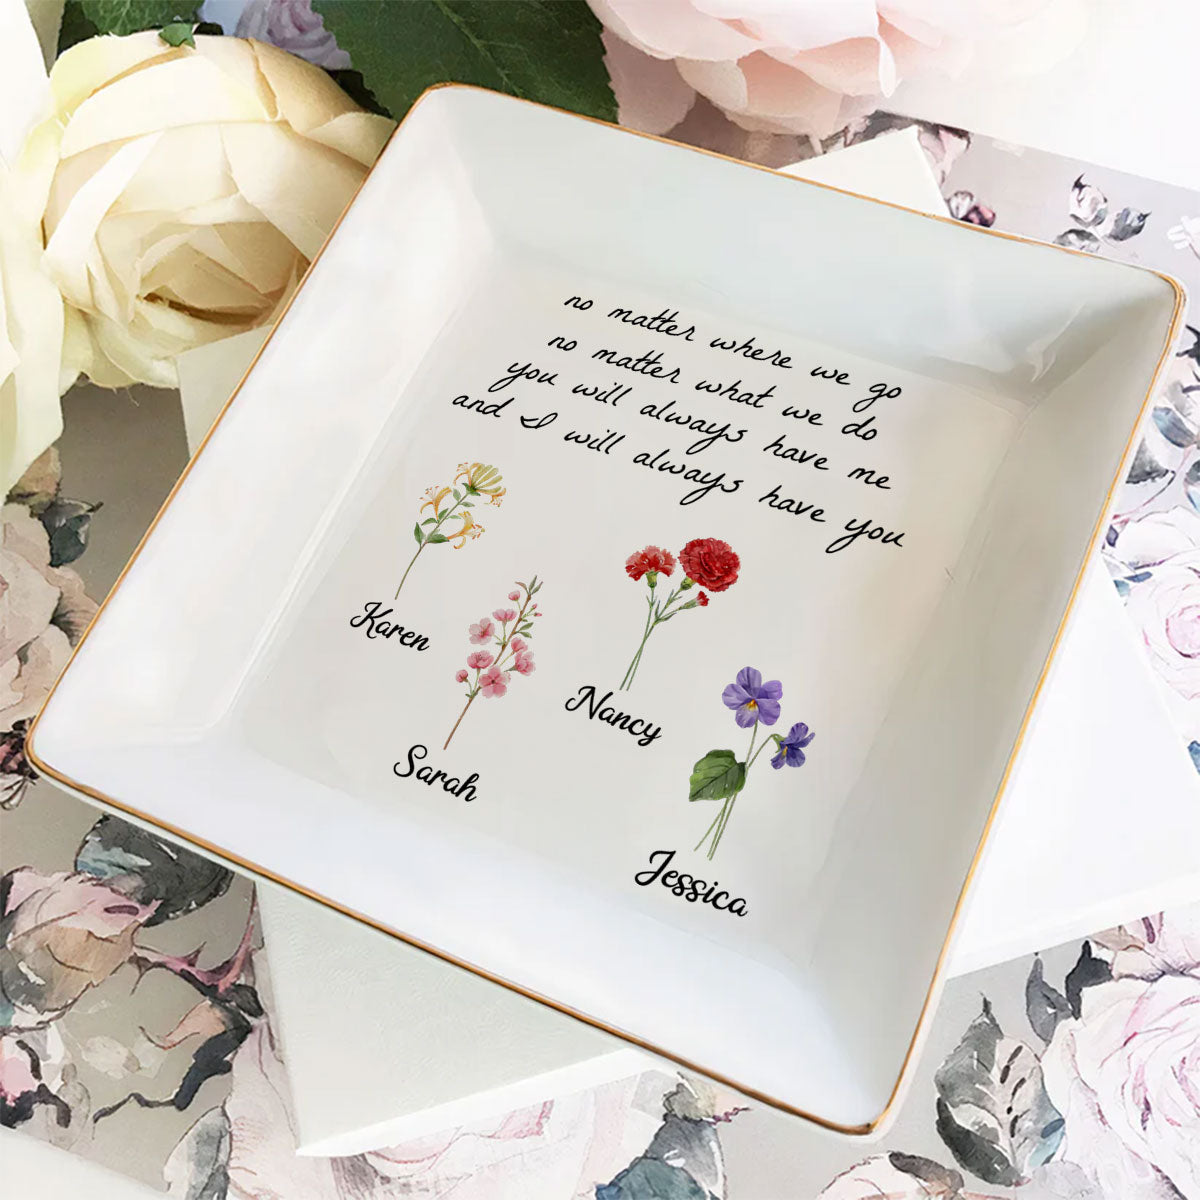 no matter where we go
no matter what we do
you will always have me
and I will always have you
Karen
Sarah
Nancy
Jessica